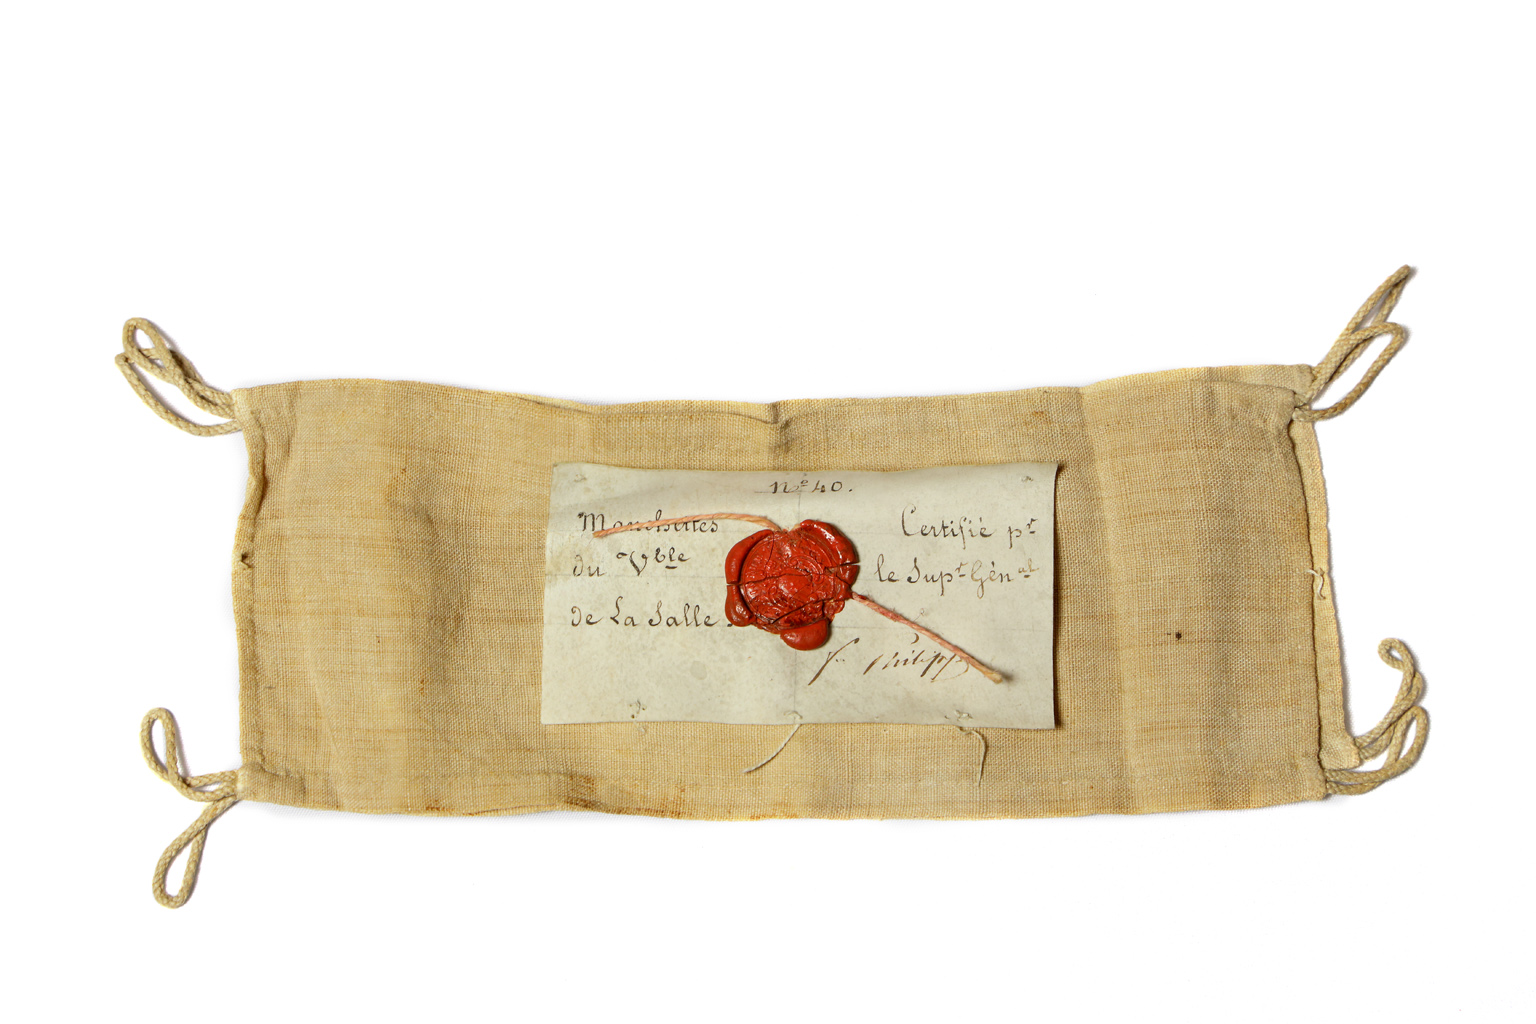 nº 40.
Manchettes
du Vble
de La Salle.
Certifié pr
le Supr Génal
f. Philippe